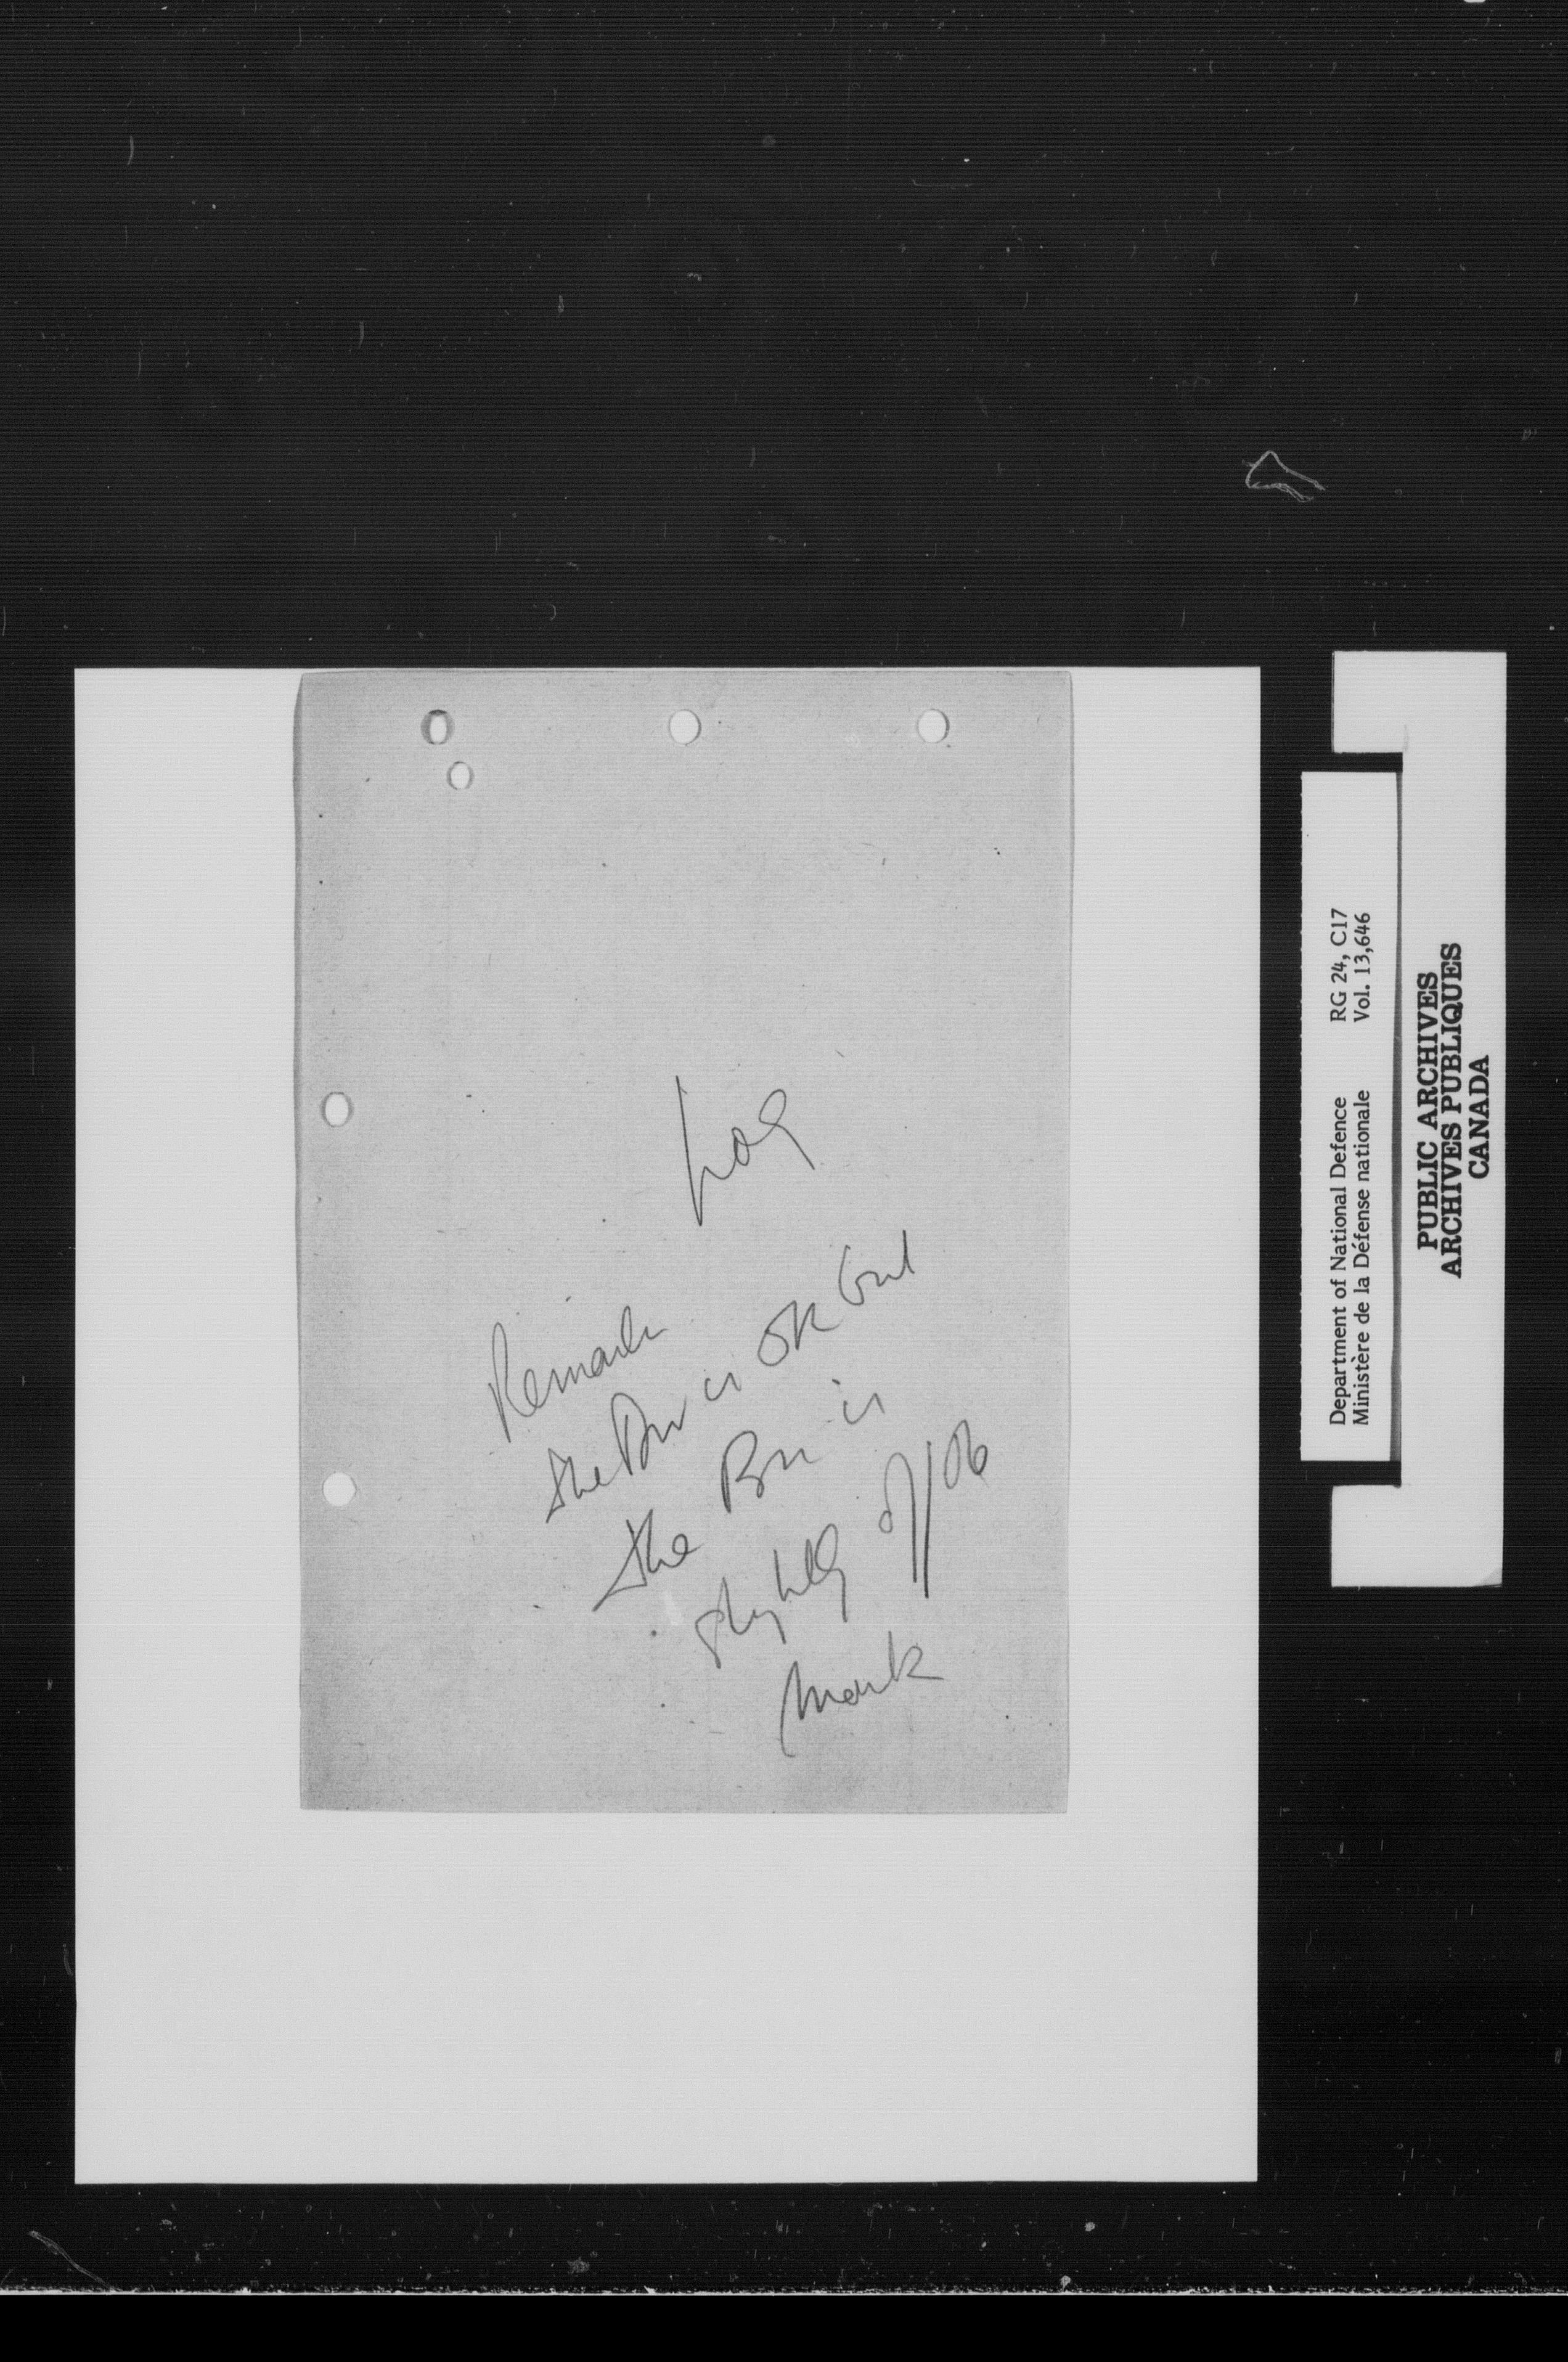 Log
Remarks
The Div is OK but
the Bn is
slightly off the
mark
Department of National Defence RG 24, C17
Ministère de la Défense nationale Vol. 13,646
PUBLIC ARCHIVES
ARCHIVES PUBLIQUES
CANADA